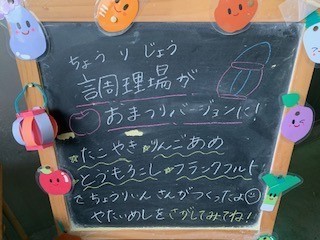 ちょうりじょう
調理場が
おまつりバージョンに!
☆たこやき☆りんごあめ
☆とうもろこし☆フランクフルト
をちょうりいんさんがつくったよ
やたいめしをさがしてみてね!